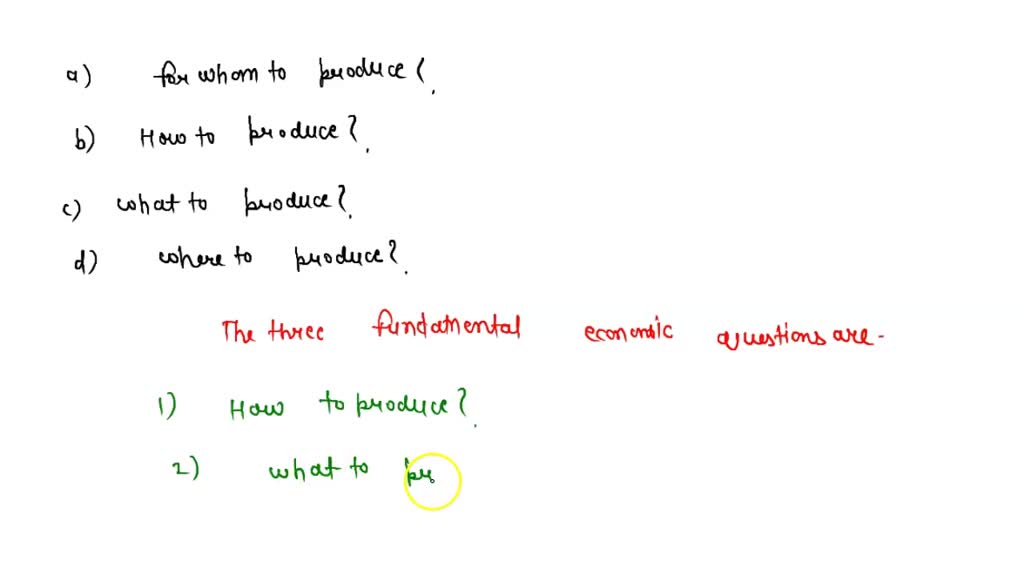 a) for whom to produce?
b) How to produce?
c) what to produce?
d) where to produce?
The three fundamental economic questions are-
1) How to produce?
2) what to pr